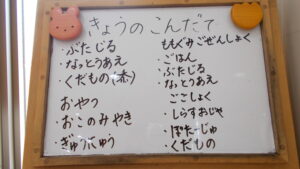 きょうのこんだて
・ぶたじる
・なっとうあえ
・くだもの(赤)
おやつ
・おこのみやき
・ぎゅうにゅう
ももぐみごぜんしょく
・ごはん
・ぶたじる
・なっとうあえ
ごごしょく
・しらすおじや
・ポタージュ
・くだもの